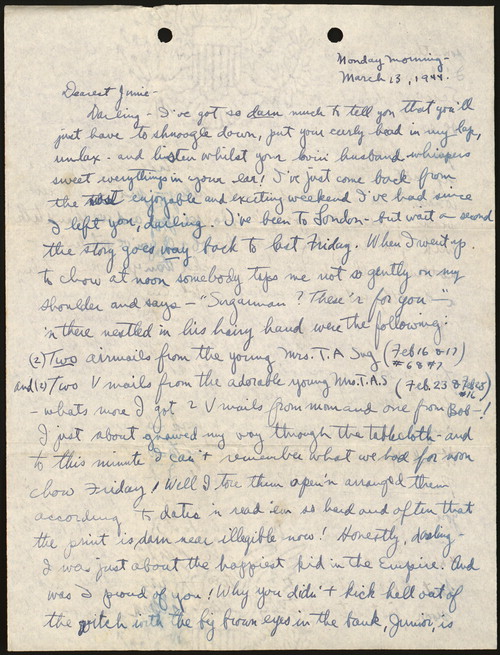 Monday morning -
March 13, 1944.
Dearest Junie -
Darling - I've got so darn much to tell you that you'll
just have to shnoogle down, put your curly head in my lap,
unlax - and listen whilst your lovin' husband whispers
sweet everythings in your ear! I've just come back from
the most enjoyable and exciting weekend I've had since
I left you, darling. I've been to London - but wait a second
the story goes way back to last Friday. When I went up
to chow at noon somebody taps me not so gently on my
shoulder and says - "Sugarman? These'r for you -"
'n there nestled in his hairy hand were the following:
(2) Two airmails from the young Mrs. T.A Sug (Feb 16 & 17)
#6 & #7
and (2) Two V mails from the adorable young Mrs. T.A.S (Feb. 23 &
#16
- whats more I got 2 V mails from mom and one from Bob -!
I just about gnawed my way through the tablecloth - and
to this minute I can't remember what we had for noon
chow Friday! Well I tore them open 'n arranged them
according to dates 'n read 'em so hard and often that
the print is darn near illegible now! Honestly, darling -
I was just about the happiest kid in the Empire. And
was I proud of you! Why you didn't kick hell out of
the bitch with the big brown eyes in the bank, Junior, is